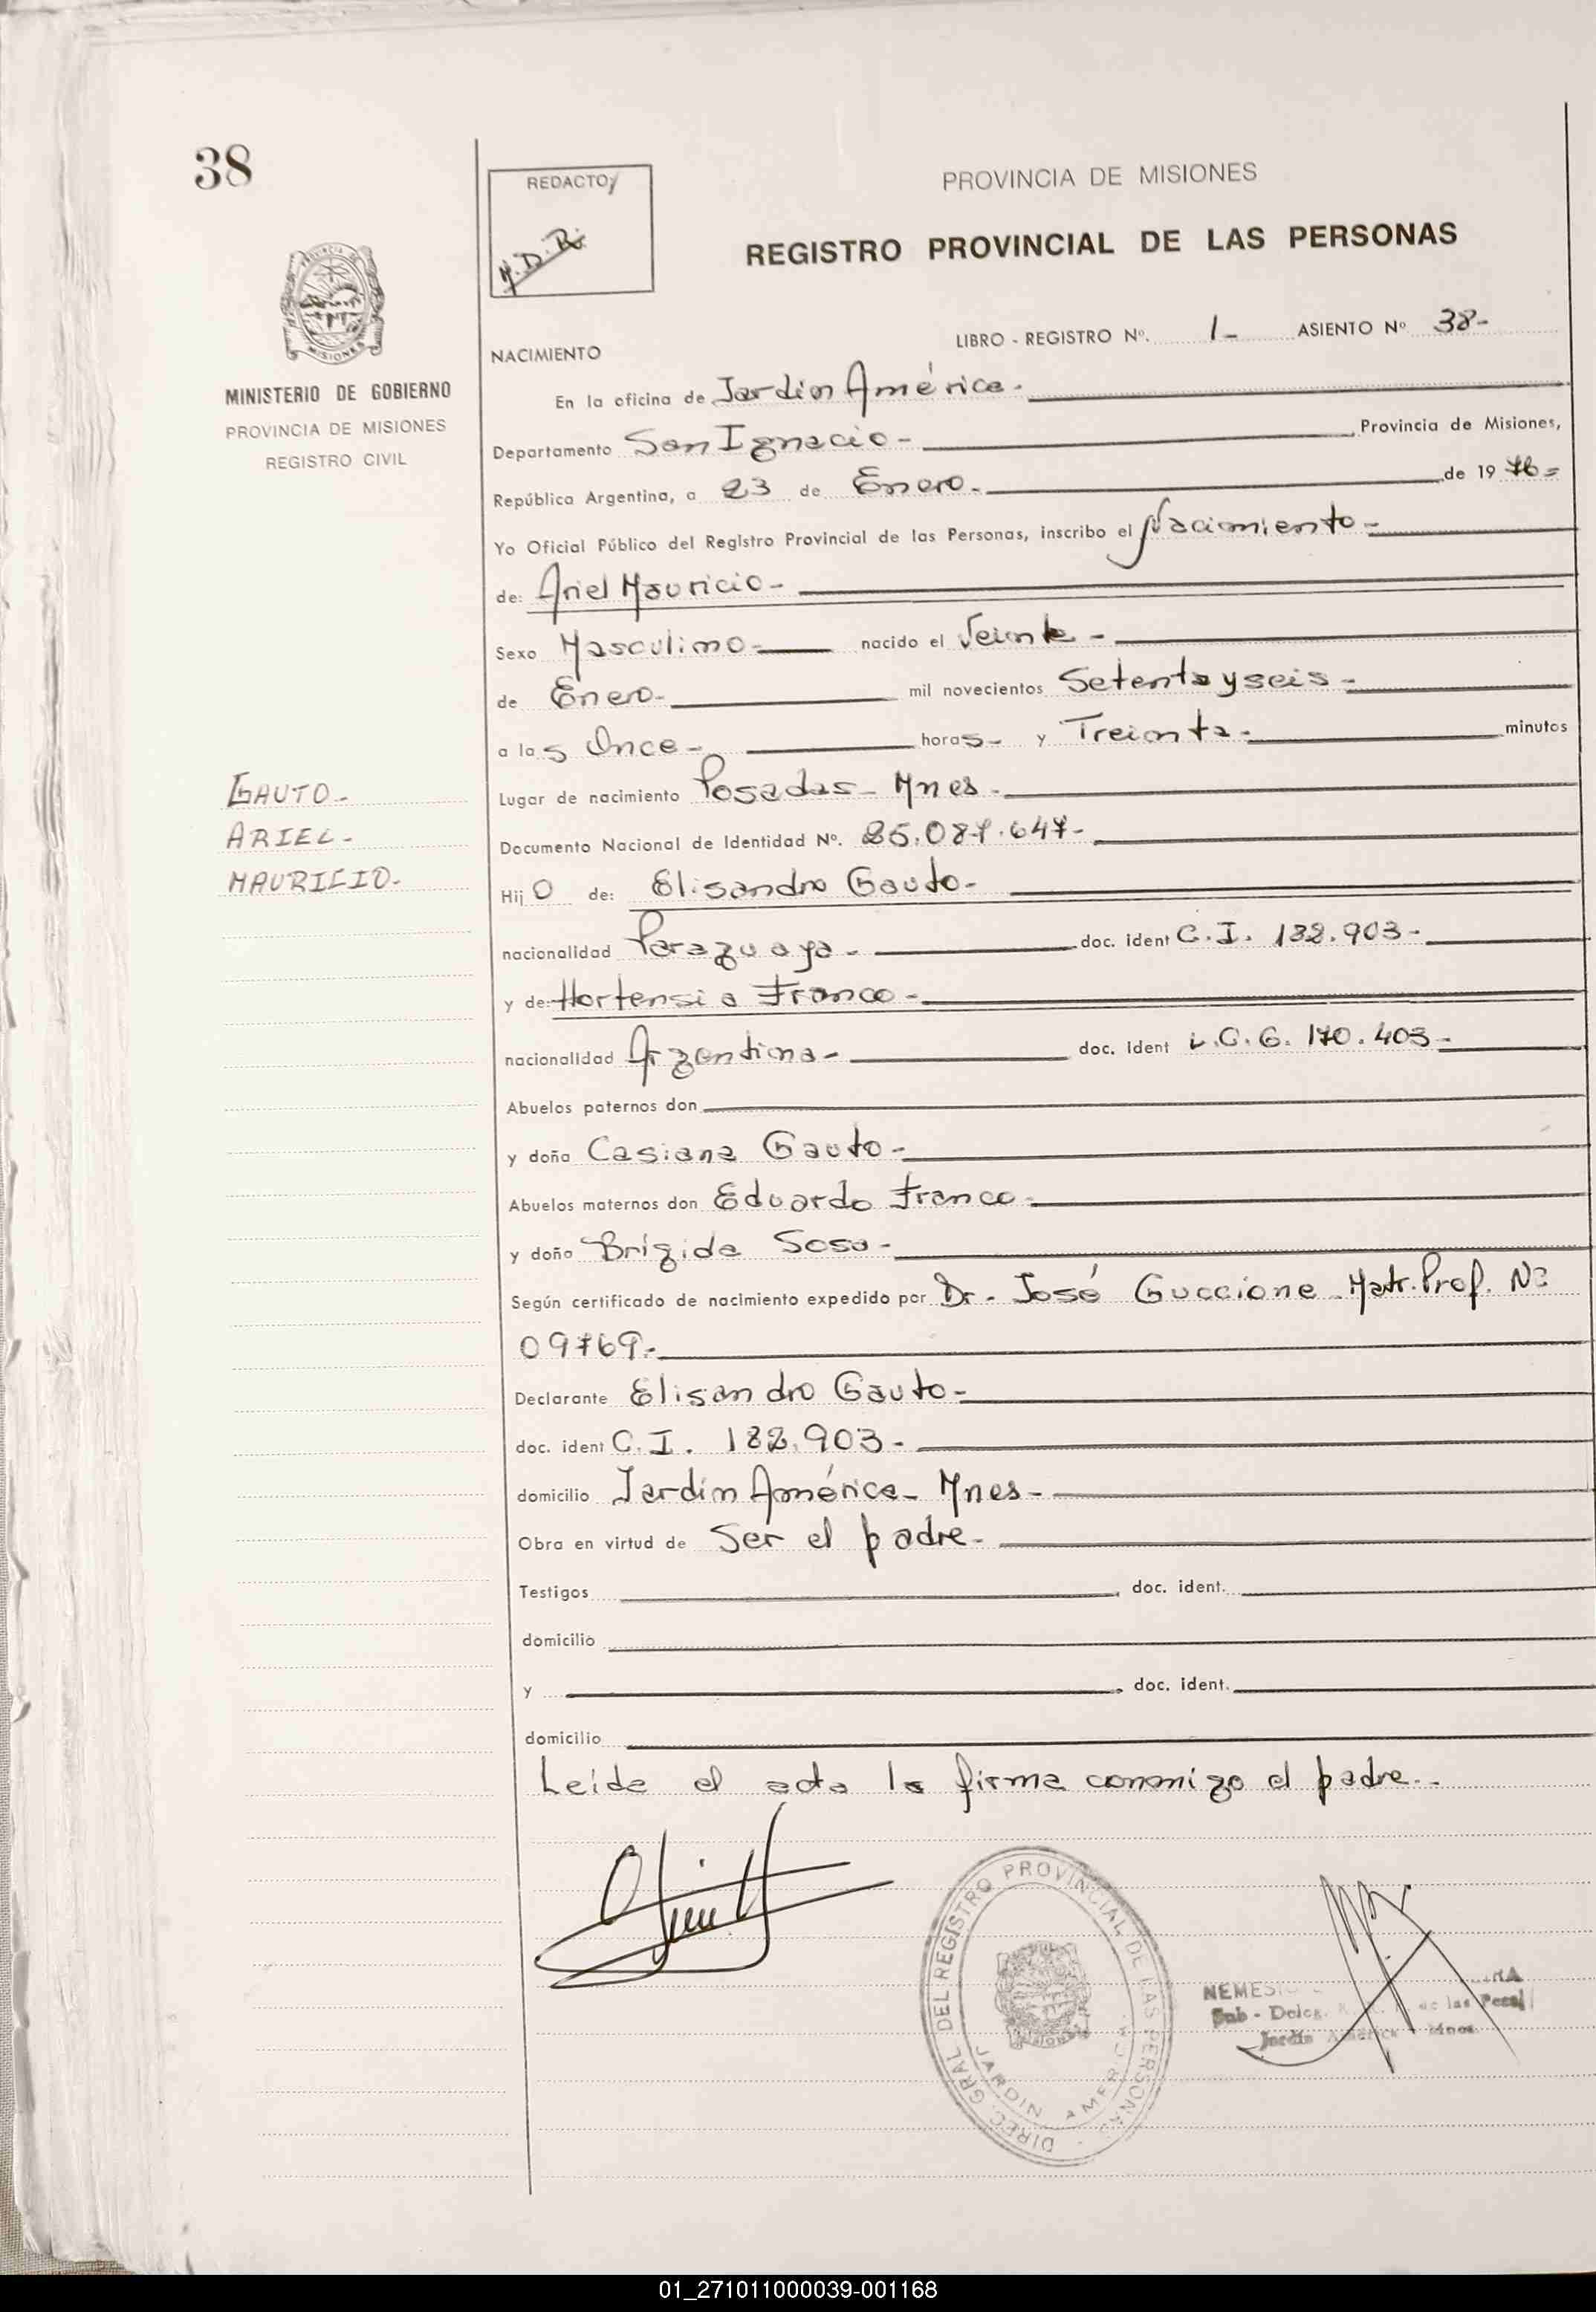 38
REDACTO
M.D.R.
PROVINCIA DE MISIONES
REGISTRO PROVINCIAL DE LAS PERSONAS
MINISTERIO DE GOBIERNO
PROVINCIA DE MISIONES
REGISTRO CIVIL
NACIMIENTO
LIBRO - REGISTRO Nº. 1- ASIENTO Nº 38-
En la oficina de Jardín América.
Departamento San Ignacio- Provincia de Misiones,
República Argentina, a 23 de Enero- de 1976=
Yo Oficial Público del Registro Provincial de las Personas, inscribo el Nacimiento-
de: Ariel Mauricio-
Sexo Masculino- nacido el Veinte-
de Enero- mil novecientos Setenta y seis-
a las Once- horas- y Treinta- minutos
GAUTO-
ARIEL-
MAURICIO-
Lugar de nacimiento Posadas- Mnes-
Documento Nacional de Identidad Nº. 25.087.647-
Hijo de: Elisandro Gauto-
nacionalidad Paraguaya- doc. ident C.I. 182.903-
y de: Hortensia Franco-
nacionalidad Argentina- doc. ident L.C. 6.170.403-
Abuelos paternos don
y doña Casiana Gauto-
Abuelos maternos don Eduardo Franco-
y doña Brígida Sosa-
Según certificado de nacimiento expedido por Dr. José Guccione Matr. Prof. Nº
09769.-
Declarante Elisandro Gauto-
doc. ident C.I. 182.903-
domicilio Jardín América- Mnes-
Obra en virtud de Ser el padre-
Testigos doc. ident.
domicilio
y doc. ident.
domicilio
Leída el acta la firma conmigo el padre.-
DIREC. GRAL DEL REGISTRO PROVINCIAL DE LAS PERSONAS
MISIONES
JARDIN AMERICA
Sub - Deleg. de las Pers.
Jardín América Mnes.
01_271011000039-001168